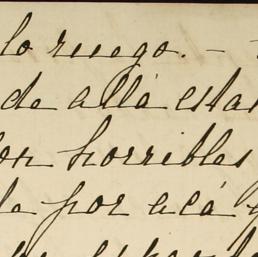 lo ruego. –
de allá esta
horribles
por acá